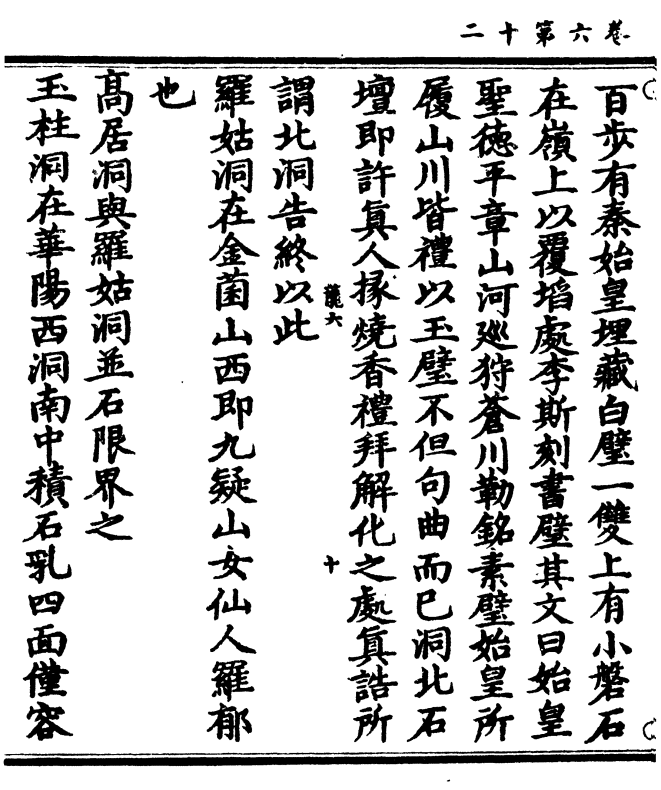 二十第六卷
百步有秦始皇埋藏白璧一雙上有小磐石
在嶺上以覆埳處李斯刻書璧其文曰始皇
聖德平章山河巡狩蒼川勒銘素璧始皇所
履山川皆禮以玉璧不但句曲而已洞北石
壇即許真人掾燒香禮拜解化之處真誥所
謂北洞告終以此
龍六
十
羅姑洞在金菌山西即九疑山女仙人羅郁
也
髙居洞與羅姑洞並石限界之
玉柱洞在華陽西洞南中積石乳四面僅容